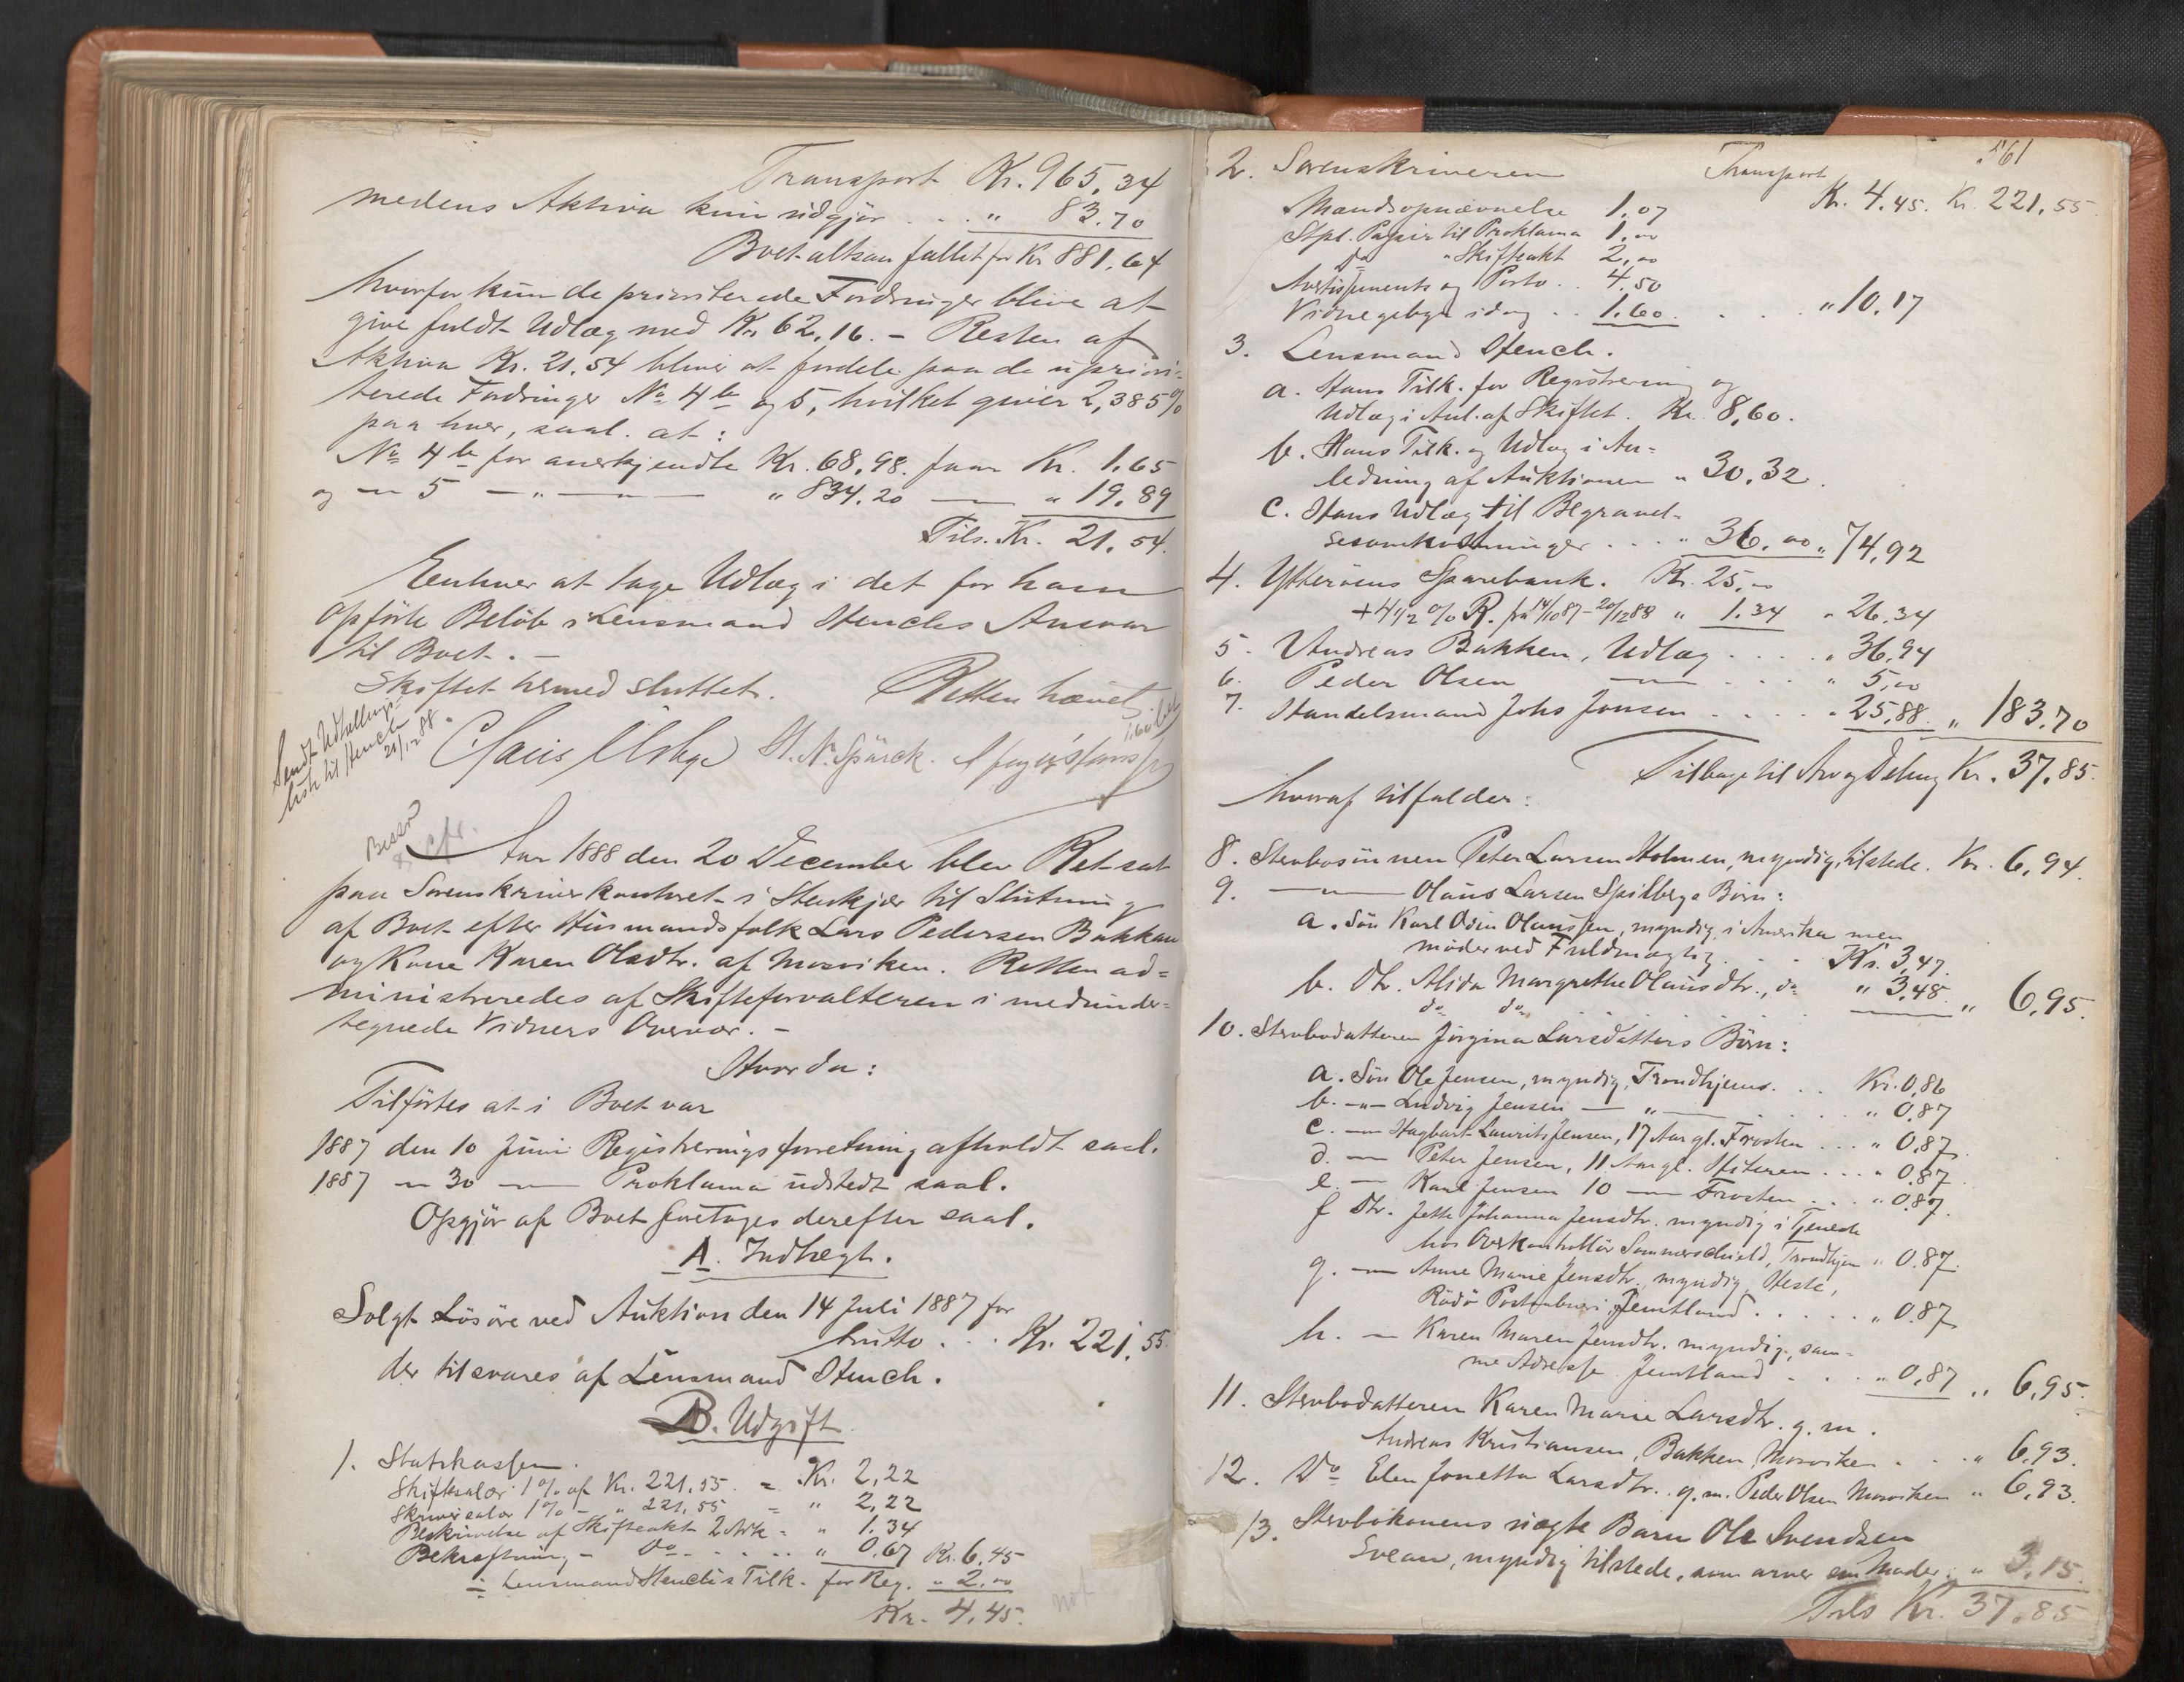 Transport Kr. 965,34
medens Aktiva kun udgjør . . . " 83.70
Boet altsaa fallit for Kr 881,64
hvorfor kun de prioriterede Fordringer blive at
give fuldt Udlæg med Kr. 62,16. - Resten af
Aktiva Kr. 21,54 bliver at fordele paa de upriori-
terede Fordringer No 4b og 5, hvilket giver 2,385%
paa hver, saal. at:
No 4b for anerkjendte Kr. 68,98. faar Kr. 1.65
og — 5 — " — " 834,20 — " 19,89
Tils. Kr. 21,54.
Enhver at tage Udlæg i det for ham
opførte Beløb i Lensmand Stenchs Ansvar
til Boet. -
Skiftet hermed sluttet. Retten hævet
Sendt Udlællings-
liste til Stench
21/12 88.
H. N. Spärck.
Besør
cfr.
Aar 1888 den 20 December blev Ret sat
paa Sorenskriverkontoret i Stenkjær til Slutning
af Boet efter Husmandsfolk Lars Pedersen Bakkan
og Kone Karen Olsdtr. af Mosviken. Retten ad=
ministreredes af Skifteforvalteren i medunder-
tegnede Vidners Overvær. -
Hvorda:
Tilførtes at i Boet var
1887 den 10 Juni Registreringsforretning afholdt saal.
1887 — 30 — Proklama udstedt saal.
Opgjør af Boet foretoges derefter saal.
A. Indtægt.
Solgt Løsøre ved Auktion den 14 Juli 1887 for
brutto . . . Kr. 221,55
der tilsvares af Lensmand Stench.
B. Udgift
1. Statskassen.
Skiftesalær 1% af Kr. 221,55. = Kr. 2,22
Skriversalær 1% - " 221,55 = " 2,22
Beskrivelse af Skifteakt 2 Ark = " 1.34
Bekræftning - Do - . . . . " 0,67 Kr. 6,45
÷ Lensmand Stenchs Tilk. for Reg. " 2.00
Kr. 4,45.
561
2. Sorenskriveren Transport
Kr. 4.45. Kr. 221,55
Mandsopnævnelse 1,07
Stpl. Papir til Proklama 1,00
do " Skifteakt 2,00
Avertissements og Porto . . 4,50
Vidnegebyr idag . . 1.60. . . . " 10,17
3. Lensmand Stench.
a. Hans Tilk. for Registrering og
Udlæg i Anl. af Skiftet. Kr. 8,60.
b. Hans Tilk. og Udlæg i An=
ledning af Auktionen " 30,32.
c. Hans Udlæg til Begravel-
sesomkostninger . . . " 36,00 " 74,92
4. Ytterøens Sparebank. Kr. 25,00
+ 4 1/2 % R. fra 14/10 87 - 20/12 88 " 1.34 " 26,34
5. Andreas Bakken, Udlæg . . . . " 36,94
6. Peder Olsen — " — . . . " 5,00
7. Handelsmand Johs Jonsen . . . . " 25,88. " 183.70
Tilbage til Arv og Deling Kr. 37,85.
hvoraf tilfalder:
8. Stervbosønnen Peter Larsen Holmen, myndig, tilstede. Kr. 6,94.
9. — " — Olaus Larsen Spilbergs Børn:
a. Søn Karl Odin Olaussen, myndig, i Amerika men
møder ved Fuldmægtig . . Kr. 3,47.
b. Dtr. Alida Margrethe Olausdtr., do " 3,48.
do do . . . . . " 6,95.
10. Stervbodatteren Jørgina Larsdatters Børn:
a. Søn Ole Jensen, myndig, Trondhjem. . . Kr. 0,86
b. — " — Ludvig Jensen — " — . . . . " 0,87
c. — Hagbart Laurits Jensen, 17 Aar gl. Frosten . . . " 0,87.
d. — Peter Jensen, 11 Aar gl. Hitteren . . . " 0,87.
e. — Karl Jensen 10 — Frosten . . . " 0,87.
f Dtr. Jette Johanna Jensdtr. myndig i Tjeneste
hos Overkontrollør Sommerschield, Trondhjem " 0.87.
g. — Anne Marie Jensdtr., myndig,
Rödö i Jemtland . . . . . " 0.87
h. — Karen Maren Jensdtr. myndig, sam=
me Adresse Jemtland . . . " 0,87 " 6,95.
11. Stervbodatteren Karen Marie Larsdtr. g. m.
Andreas Kristiansen, Bakken, Mosviken . . . " 6,93.
12. Do Elen Jonetta Larsdtr. g. m. Peder Olsen Mosviken " 6,93.
13. Stervbokonens uægte Barn Ole Svendsen
Svean, myndig tilstede, som arver sin Moder. " 3,15.
Tils Kr. 37.85